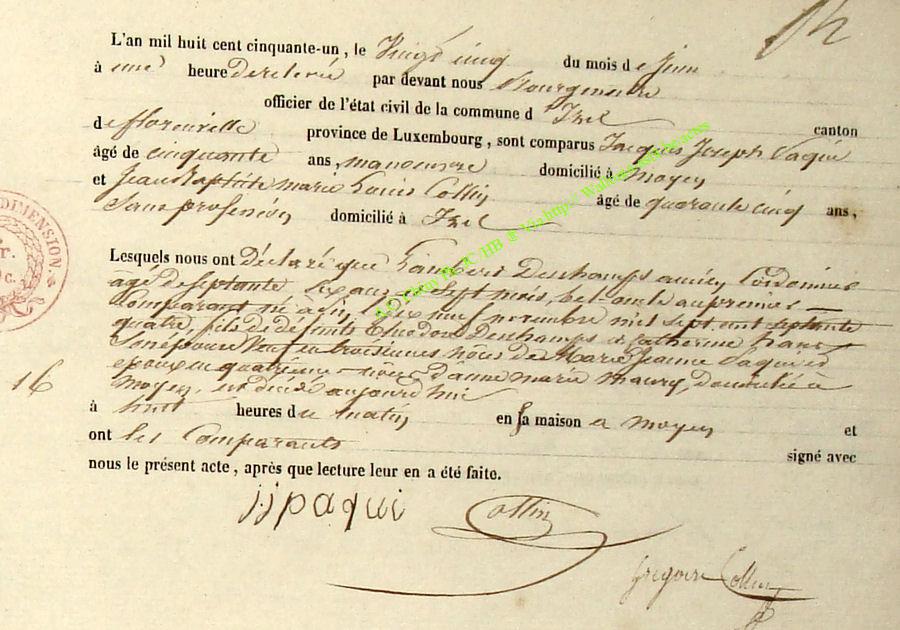 L'an mil huit cent cinquante-un, le Vingt cinq du mois de Juin
à une heure de relevée par devant nous Bourgmestre
officier de l'état civil de la commune d'Izel canton
de florenville province de Luxembourg, sont comparus Jacques Joseph Paqui
âgé de cinquante ans, manoeuvre domicilié à moyen
et Jean Baptiste marie Louis Collin âgé de quarante cinq ans,
Sans profession domicilié à Izel
Lesquels nous ont déclaré que Lambert Deschamps ancien Cordonnier
agé de septante six ans sept mois, bel oncle au premier
Comparant né à le dix neuf novembre mil sept cent septante
quatre, fils de défunts Theodore Deschamps & catherine
Veuf en troisièmes nôces de Marie Jeanne Paqui et
epoux en quatrieme d'anne marie maury, domicilié à
moyen, est décédé aujourd'hui
à huit heures du matin en sa maison a moyen et
ont les Comparants signé avec
nous le présent acte, après que lecture leur en a été faite.
jjpaqui Collin
Grégoire Collin
16
DIMENSION